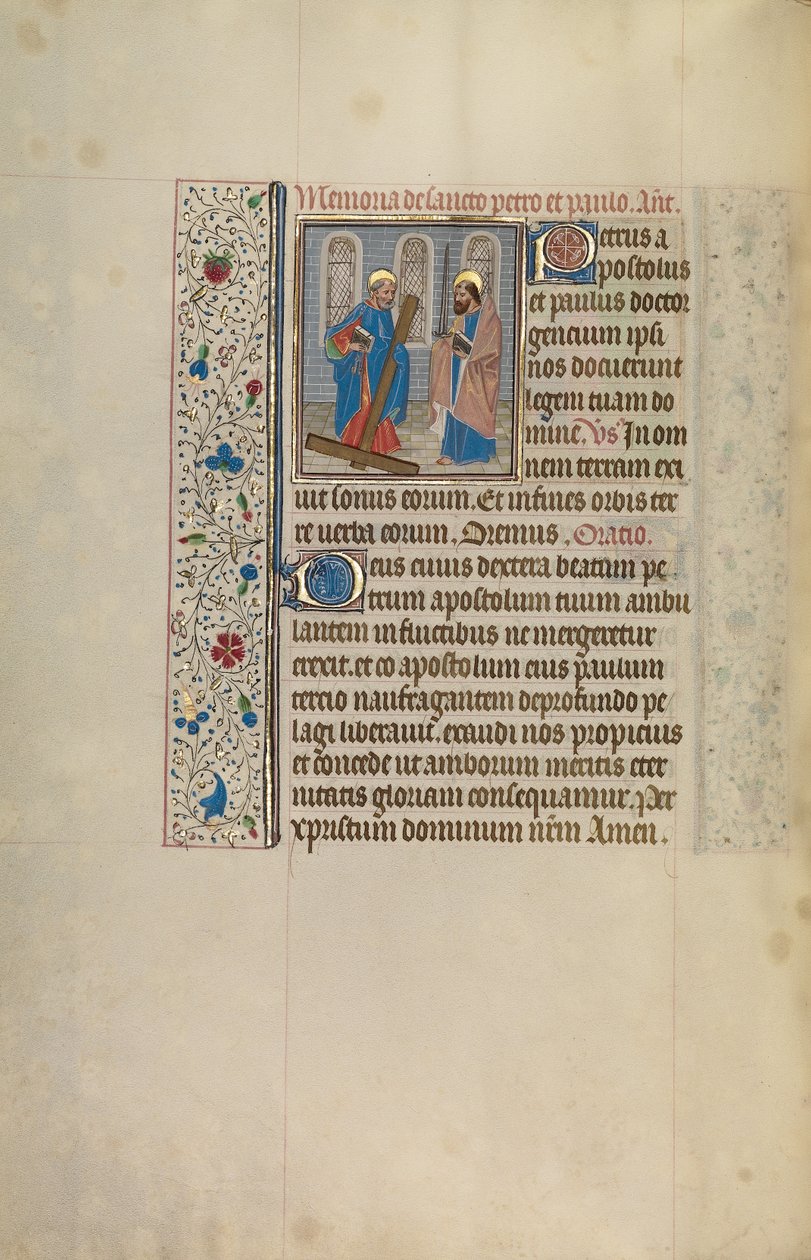 Memoria de sancto petro et paulo. Añt.
Petrus a
postolus
et paulus doctor
gencium ipsi
nos docuerunt
legem tuam do
mine. Vs̄ In om
nem terram exi
uit sonus eorum. Et in fines orbis ter
re uerba eorum. Oremus. Oratio.
Deus cuius dextera beatum pe
trum apostolum tuum ambu
lantem in fluctibus ne mergeretur
erexit. et co apostolum eius paulum
tercio naufragantem de profundo pe
lagi liberauit. exaudi nos propicius
et c̄oncede ut amborum meritis eter
nitatis gloriam consequamur. Per
xpristum dominum nr̄m Amen.